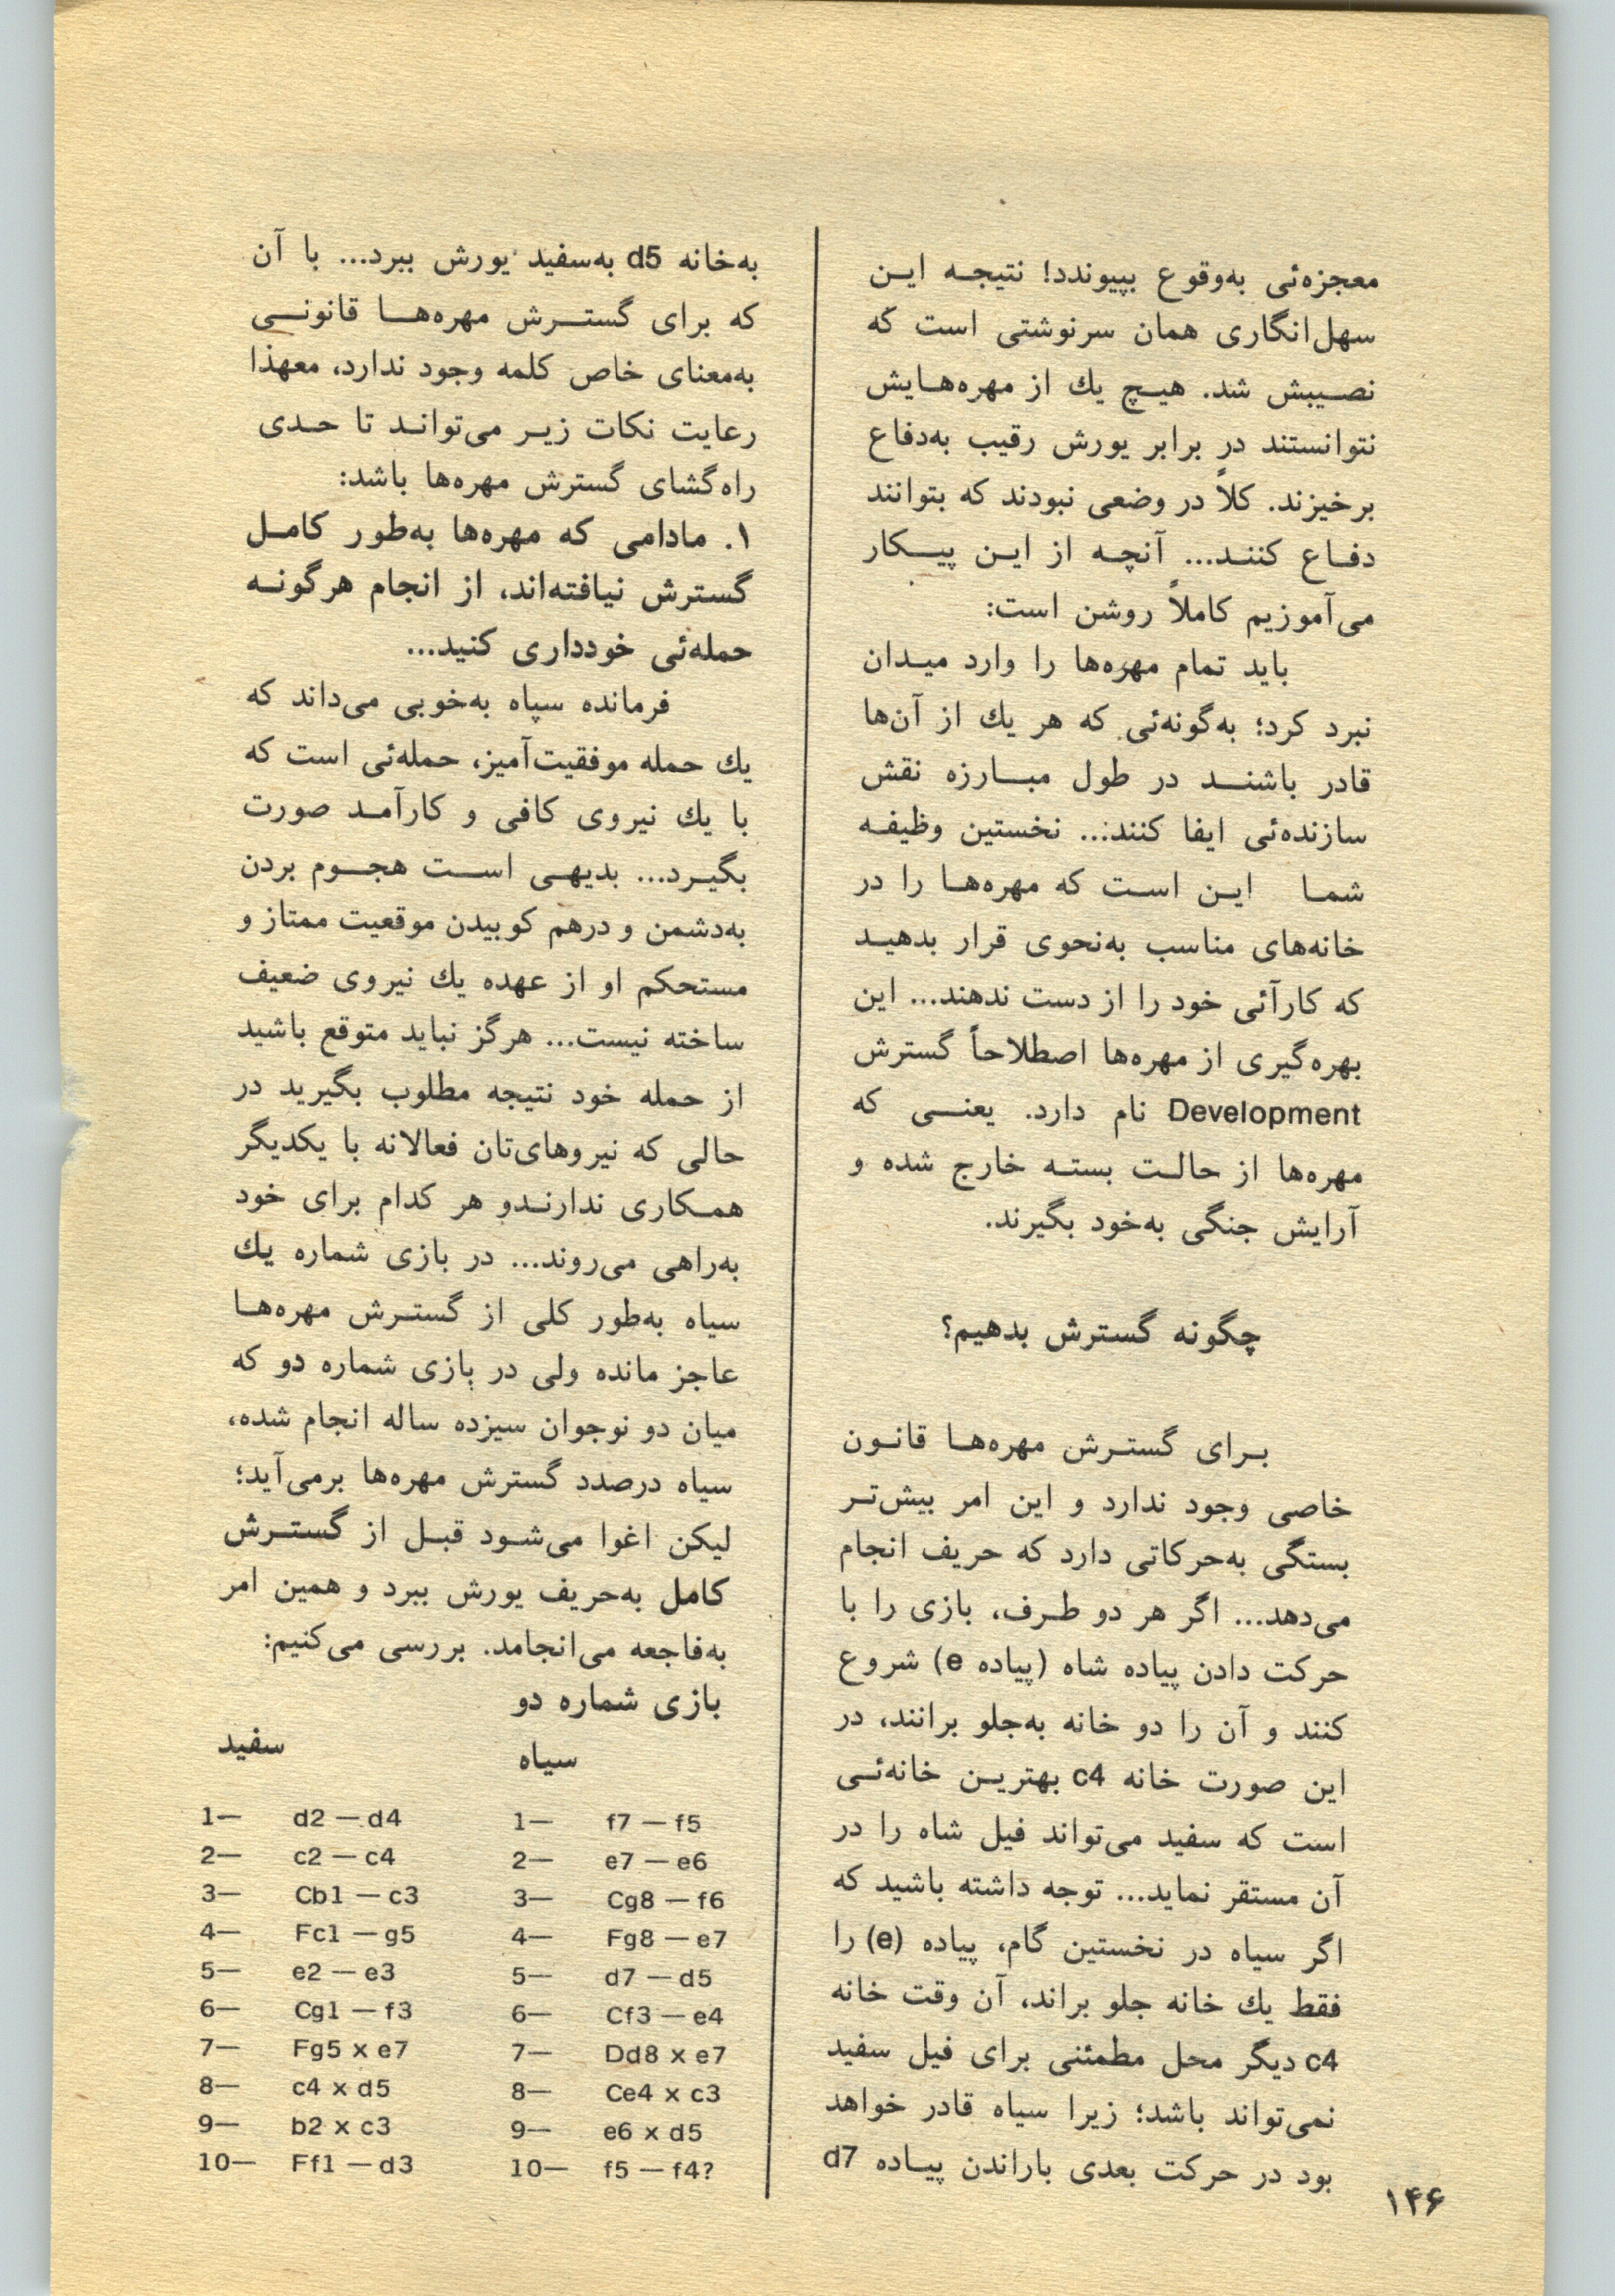 معجزه‌ئی به‌وقوع بپیوندد! نتیجه این
سهل‌انگاری همان سرنوشتی است که
نصیبش شد. هیچ یك از مهره‌هایش
نتوانستند در برابر یورش رقیب به‌دفاع
برخیزند. کلاً در وضعی نبودند که بتوانند
دفاع کنند... آنچه از این پیکار
می‌آموزیم کاملاً روشن است:
باید تمام مهره‌ها را وارد میدان
نبرد کرد؛ به‌گونه‌ئی که هر یك از آن‌ها
قادر باشند در طول مبارزه نقش
سازنده‌ئی ایفا کنند... نخستین وظیفه
شما این است که مهره‌ها را در
خانه‌های مناسب به‌نحوی قرار بدهید
که کارآئی خود را از دست ندهند... این
بهره‌گیری از مهره‌ها اصطلاحاً گسترش
Development نام دارد. یعنی که
مهره‌ها از حالت بسته خارج شده و
آرایش جنگی به‌خود بگیرند.
چگونه گسترش بدهیم؟
برای گسترش مهره‌ها قانون
خاصی وجود ندارد و این امر بیش‌تر
بستگی به‌حرکاتی دارد که حریف انجام
می‌دهد... اگر هر دو طرف، بازی را با
حرکت دادن پیاده شاه (پیاده e) شروع
کنند و آن را دو خانه به‌جلو برانند، در
این صورت خانه c4 بهترین خانه‌ئی
است که سفید می‌تواند فیل شاه را در
آن مستقر نماید... توجه داشته باشید که
اگر سیاه در نخستین گام، پیاده (e) را
فقط یك خانه جلو براند، آن وقت خانه
c4 دیگر محل مطمئنی برای فیل سفید
نمی‌تواند باشد؛ زیرا سیاه قادر خواهد
بود در حرکت بعدی باراندن پیاده d7
به‌خانه d5 به‌سفید یورش ببرد... با آن
که برای گسترش مهره‌ها قانونی
به‌معنای خاص کلمه وجود ندارد، معهذا
رعایت نکات زیر می‌تواند تا حدی
راه‌گشای گسترش مهره‌ها باشد:
۱. مادامی که مهره‌ها به‌طور کامل
گسترش نیافته‌اند، از انجام هرگونه
حمله‌ئی خودداری کنید...
فرمانده سپاه به‌خوبی می‌داند که
یك حمله موفقیت‌آمیز، حمله‌ئی است که
با یك نیروی کافی و کارآمد صورت
بگیرد... بدیهی است هجوم بردن
به‌دشمن و درهم کوبیدن موقعیت ممتاز و
مستحکم او از عهده یك نیروی ضعیف
ساخته نیست... هرگز نباید متوقع باشید
از حمله خود نتیجه مطلوب بگیرید در
حالی که نیروهای‌تان فعالانه با یکدیگر
همکاری ندارندو هر کدام برای خود
به‌راهی می‌روند... در بازی شماره یك
سیاه به‌طور کلی از گسترش مهره‌ها
عاجز مانده ولی در بازی شماره دو که
میان دو نوجوان سیزده ساله انجام شده،
سیاه درصدد گسترش مهره‌ها برمی‌آید؛
لیکن اغوا می‌شود قبل از گسترش
کامل به‌حریف یورش ببرد و همین امر
به‌فاجعه می‌انجامد. بررسی می‌کنیم:
بازی شماره دو
سفید سیاه
1— d2 — d4 1— f7 — f5
2— c2 — c4 2— e7 — e6
3— Cb1 — c3 3— Cg8 — f6
4— Fc1 — g5 4— Fg8 — e7
5— e2 — e3 5— d7 — d5
6— Cg1 — f3 6— Cf3 — e4
7— Fg5 x e7 7— Dd8 x e7
8— c4 x d5 8— Ce4 x c3
9— b2 x c3 9— e6 x d5
10— Ff1 — d3 10— f5 — f4?
۱۴۶